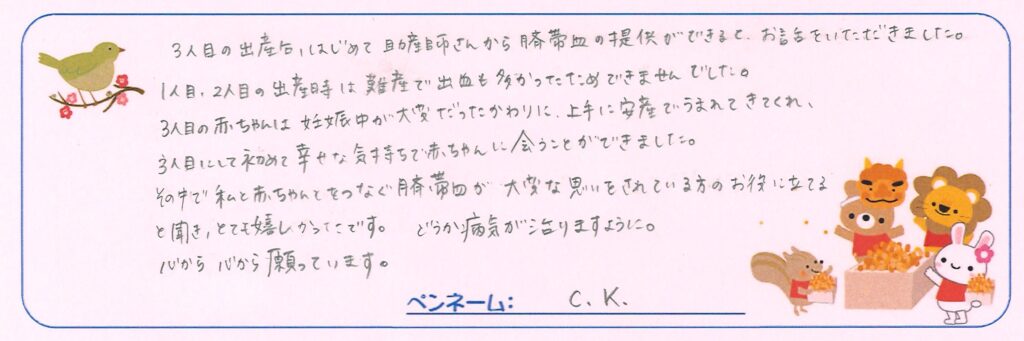 3人目の出産台,はじめて助産師さんから臍帯血の提供ができると、お話をいただきました。
1人目、2人目の出産時は難産で出血も多かったためできませんでした。
3人目の赤ちゃんは妊娠中が大変だったかわりに、上手に安産でうまれてきてくれ、
3人目にして初めて幸せな気持ちで赤ちゃんに会うことができました。
その中で私と赤ちゃんとをつなぐ臍帯血が大変な思いをされている方のお役に立てる
と聞き,とても嬉しかったです。 どうか病気が治りますように。
心から心から願っています。
ペンネーム: C.K.